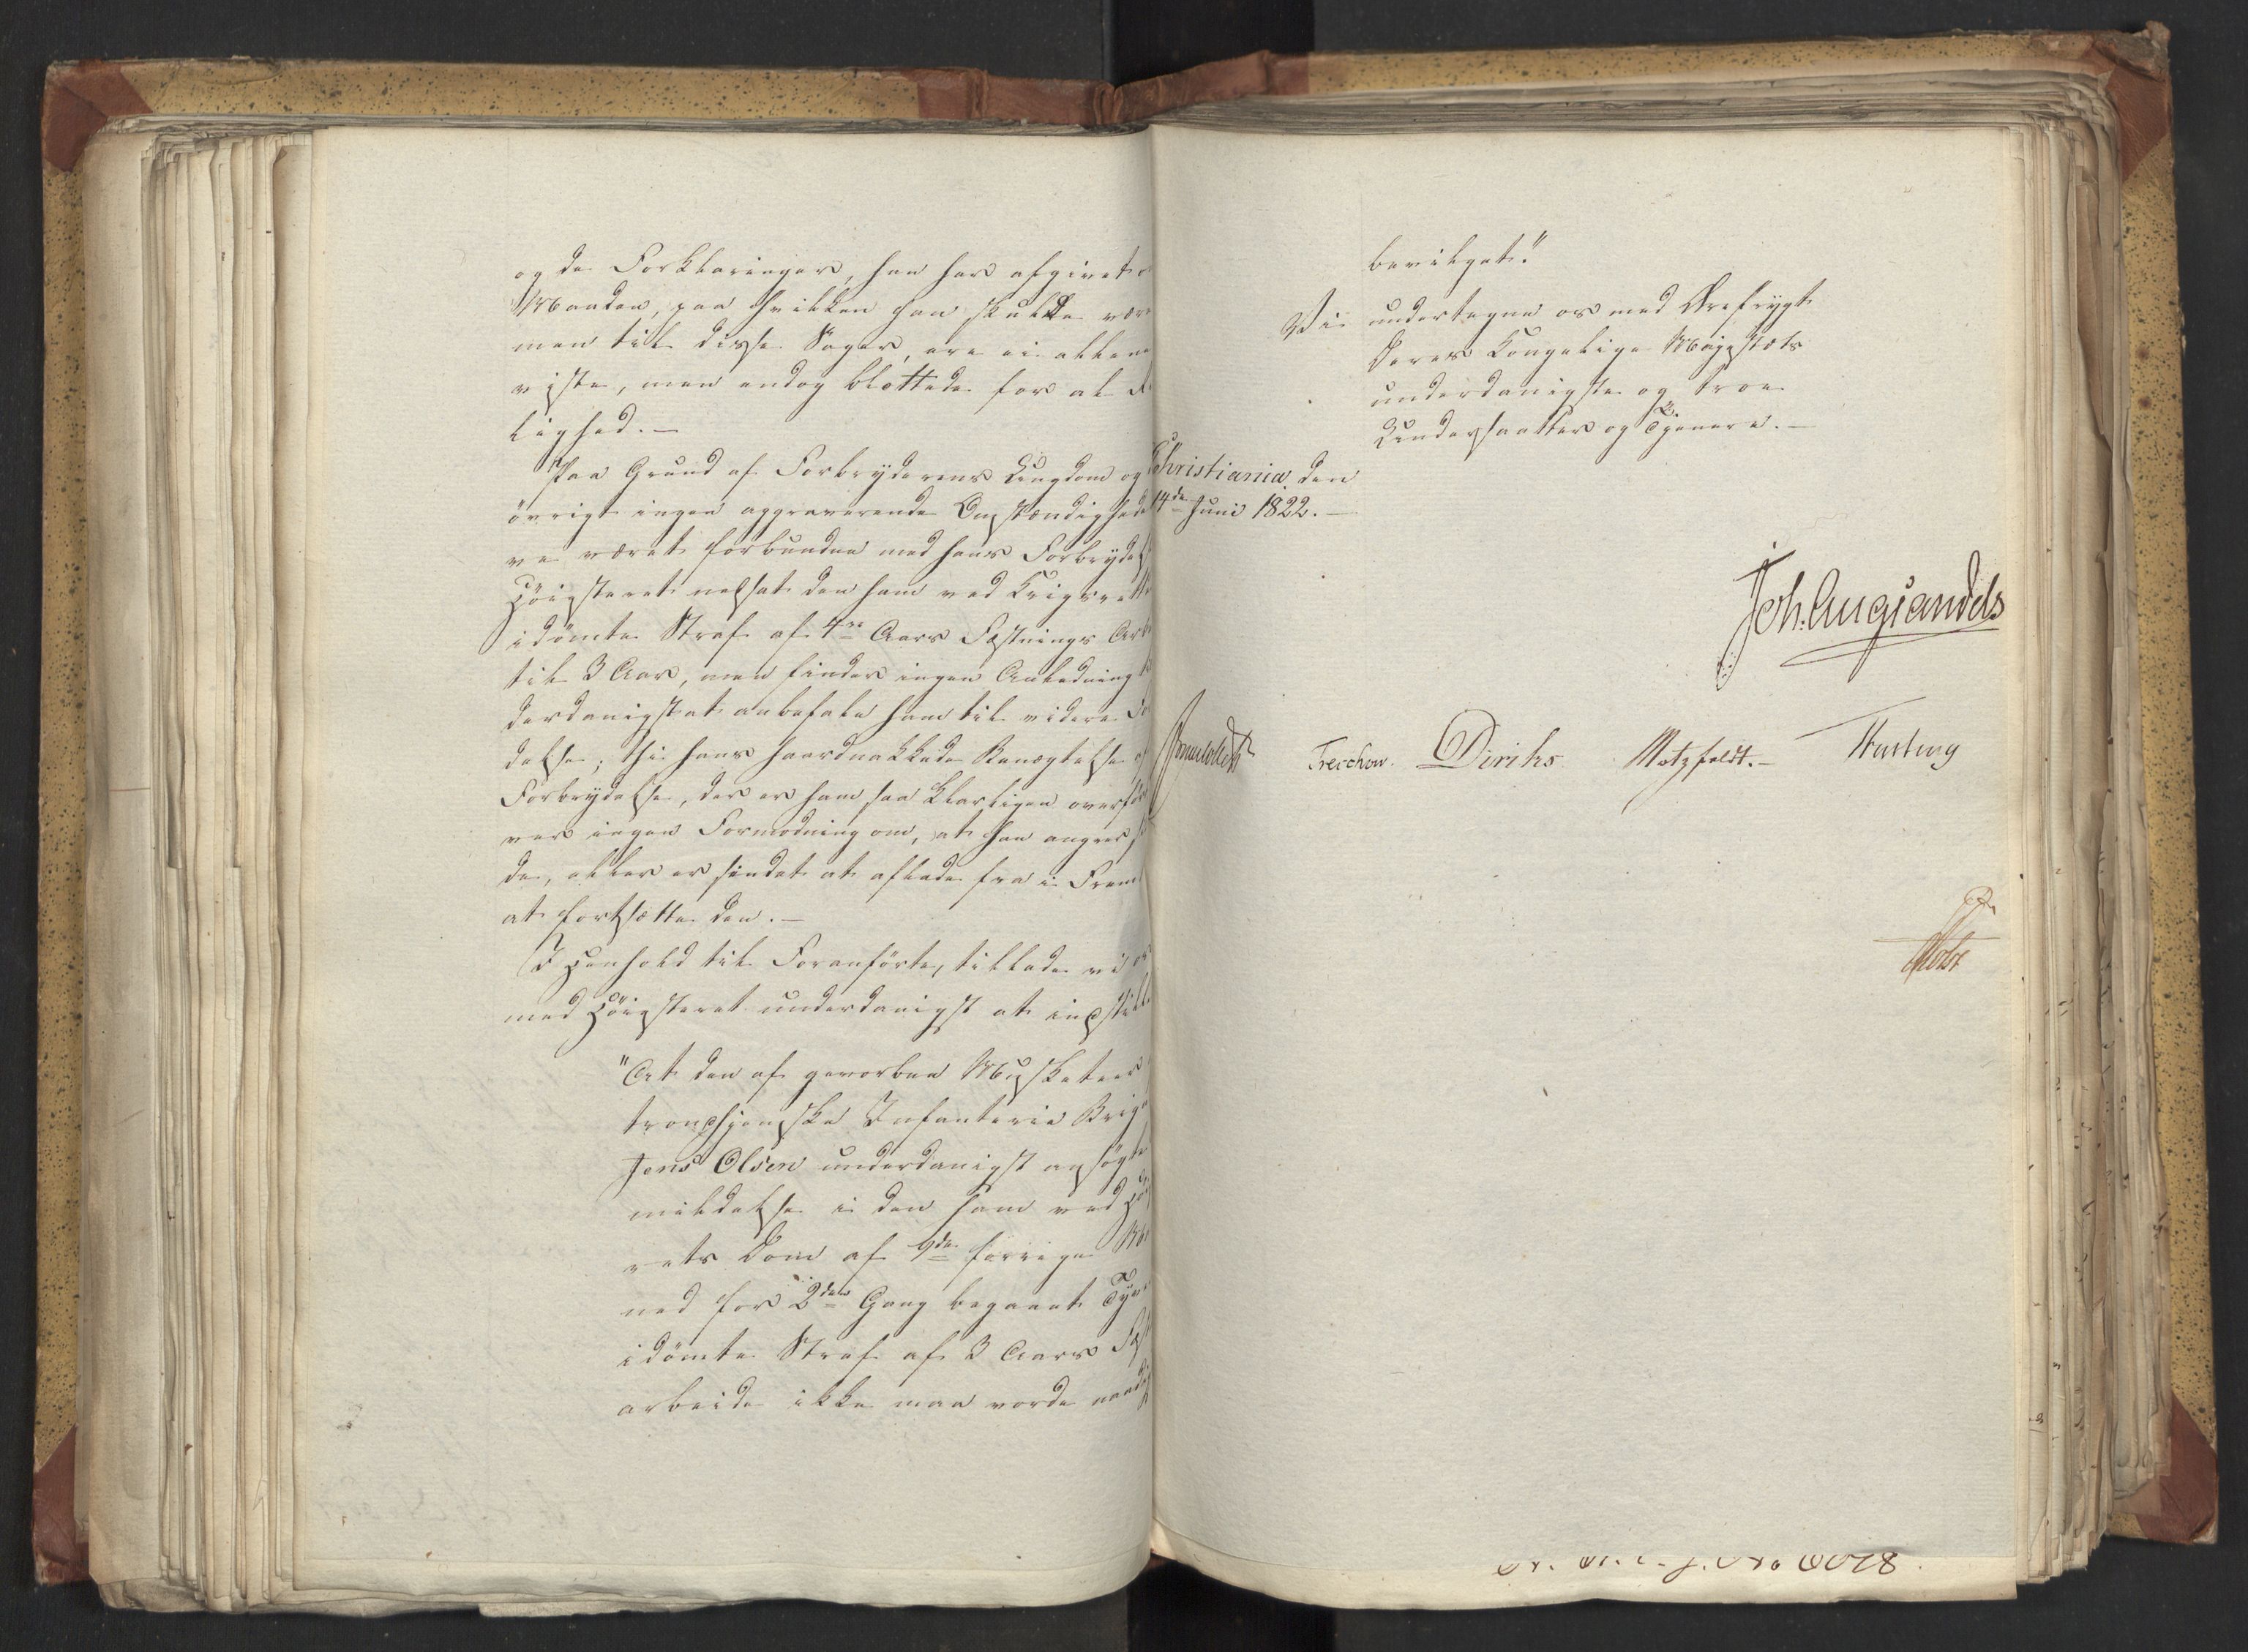 og de Forklaringer, han har afgivet o
Maaden, paa hvilken han skulde være
men til disse Sager, ere ei allene
viste, men endog blottede for al
lighed.—
Paa Grund af Forbryderens Ungdom og
övrigt ingen aggraverende Omstændighede
ve været forbunden med hans Forbrydelse
Höiesteret nedsat den ham ved Krigsrette
idömte Straf af 4re Aars Fæstnings Arbe
til 3 Aar, men finder ingen Anledning
derdanigst at anbefale ham til videre
delse; thi hans haardnakkede Benægtelse af
Forbrydelse, der er ham saa klarligen overfört
ver ingen Formodning om, at han angrer
de, eller er sindet at aflade fra i Frem
at fortsætte den.—
I Henhold til Foranförte, tillade vi os
med Höiesteret underdanigst at indstille
"At den af gevorben Musketeer
trondhjemske Infanterie Briga
Jens Olsen underdanigst ansögte
mildelse i den ham ved Höi
rets Dom af 9de forrige Ma
ned for 2den Gang begaaet Tyve
idömte Straf af 3 Aars Fæst
arbeide ikke maa vorde naadigst
bevilget."
Vi undertegne os med Ærefrygt
Deres Kongelige Majestæts
underdanigste og troe
Undersaatter og Tjenere.—
Christiania den
14de Juni 1822.—
Joh. Aug Sandels
Sommerhielm Treschow. Diriks Motzfeldt.— Hasting
Holst